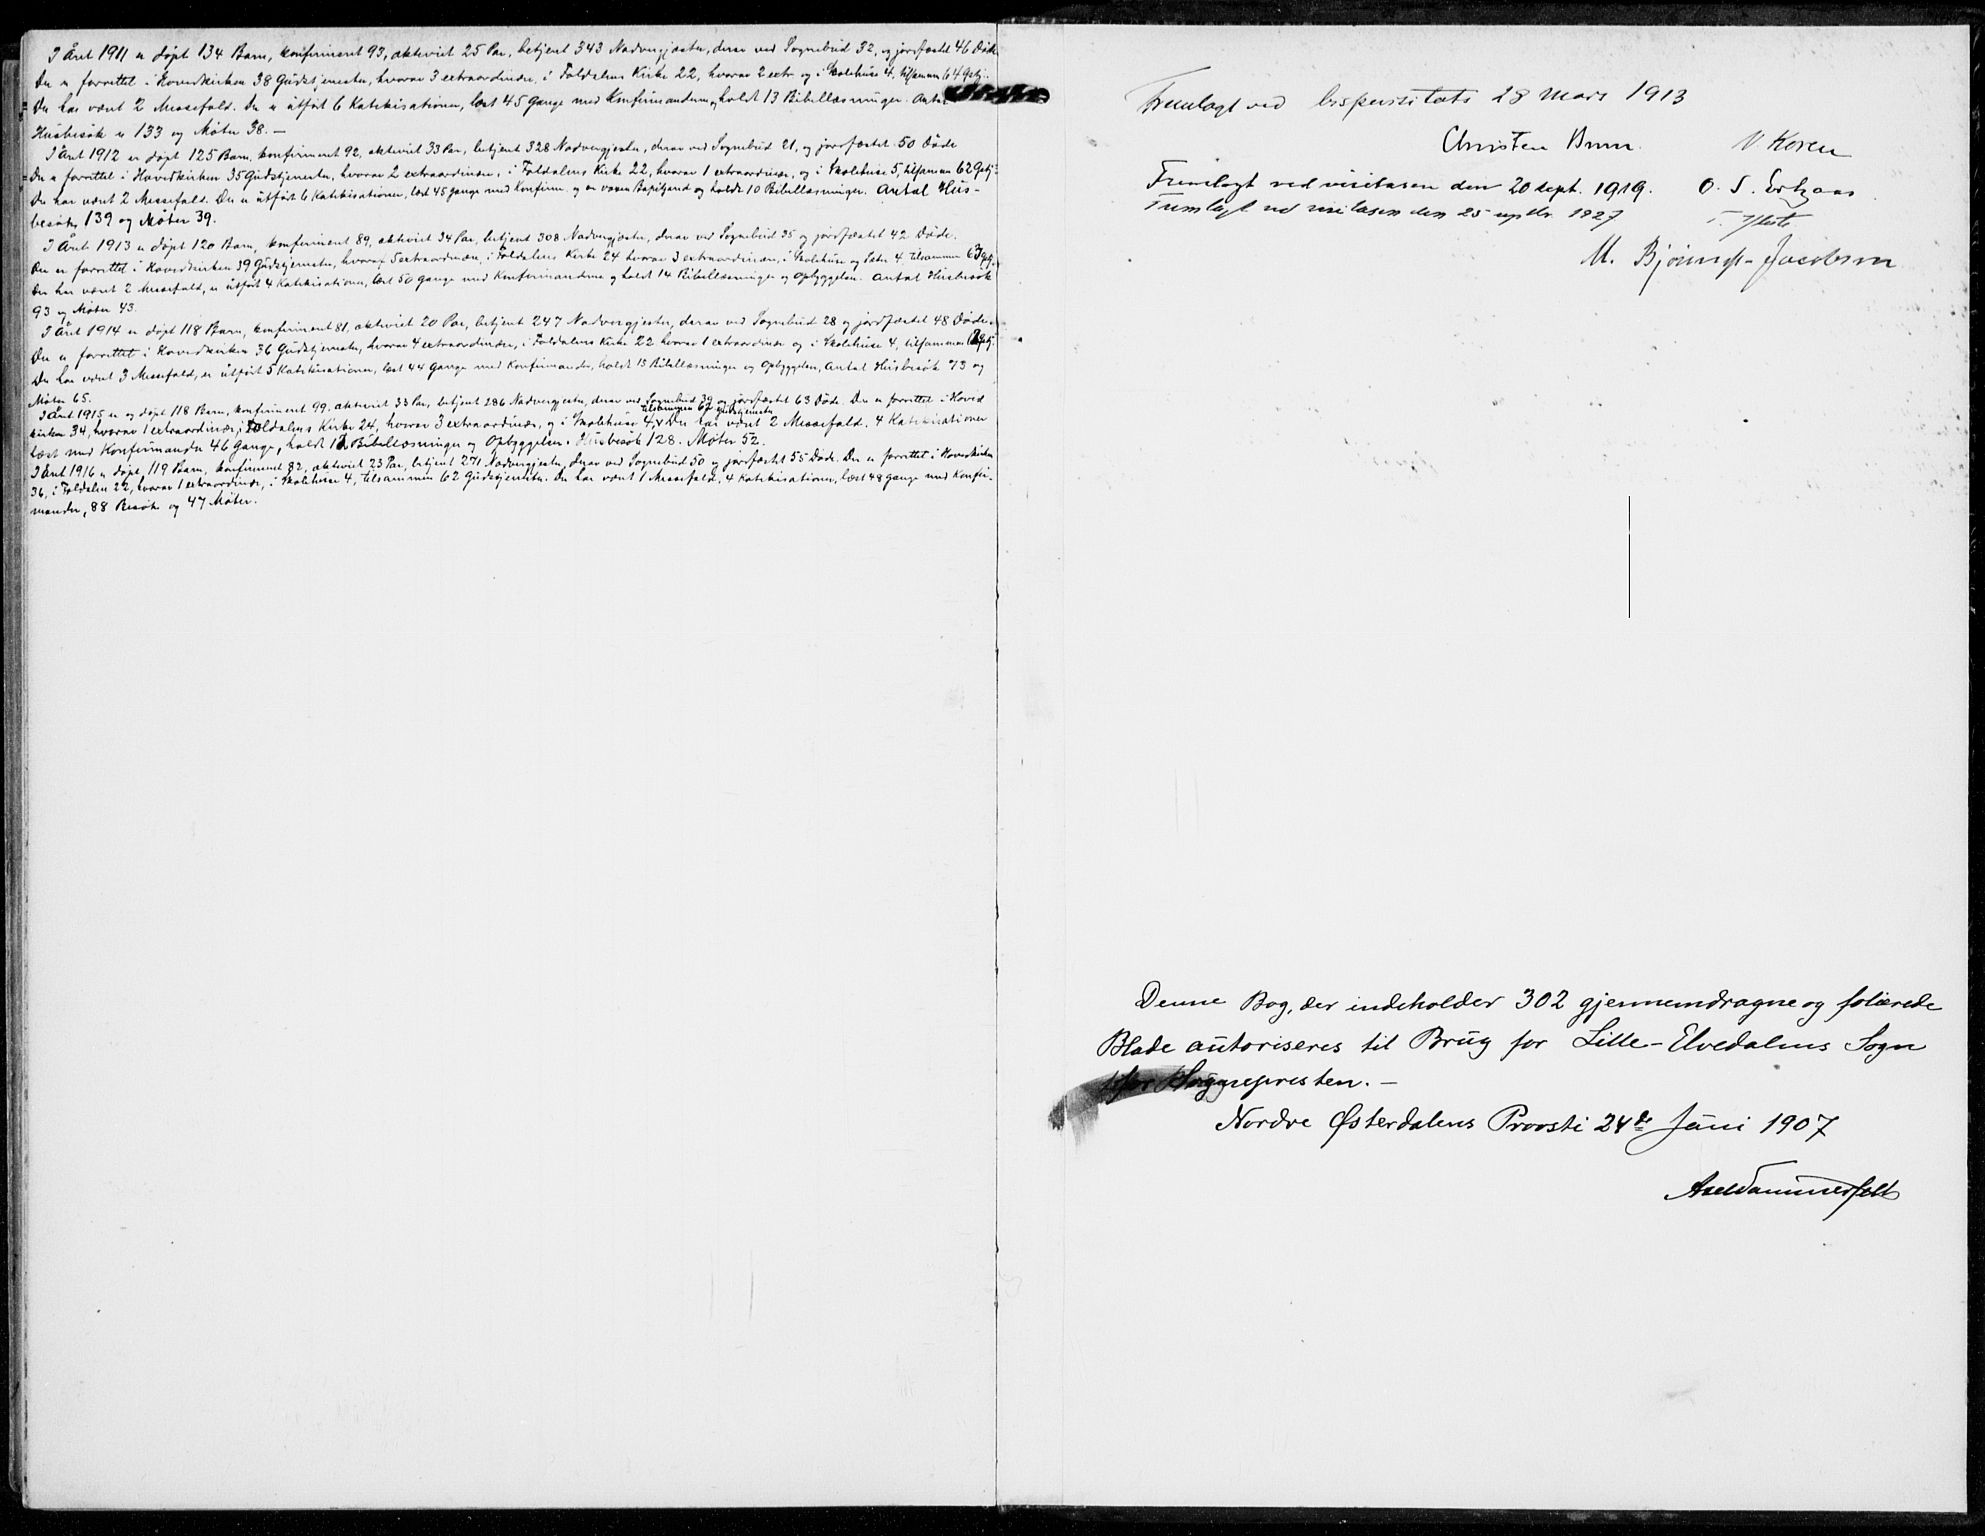 I Året 1911 er døpt 134 Barn, konfirmeret 93, ækteviet 25 Par, betjent 343 Nadvergjester, derav ved Sognebud 32, og jordfæstet 46 Døde
Der er forrettet i Hovedkirken 38 Gudstjenester, hvorav 3 extraordinære, i Foldalens Kirke 22, hvorav 2 extr. og i Skolehuse 4, tilsammen 64 Gstj.
Der har været 2 Messefald. Der er utført 6 Katekisationer, læst 45 Gange med Konfirmanderne, holdt 13 Bibellæsninger. Antal
Husbesøk er 133 og Møter 38. –
I Året 1912 er døpt 125 Barn, konfirmeret 92, ækteviet 33 Par, betjent 328 Nadvergjester, derav ved Sognebud 21, og jordfæstet 50 Døde
Der er forrettet i Hovedkirken 35 Gudstjenester, hvorav 2 extraordinære, i Foldalens Kirke 22, hvorav 1 extraordinær, og i Skolehuse 5, tilsamman 62 Gstj.
Der har været 2 Messefald. Der er utført 6 Katekisationer, læst 45 gange med Konfirm. og en voxen og holdt 10 Bibellæsninger. Antal Hus-
besøk 139 og Møter 39.
I Året 1913 er døpt 120 Barn, konfirmeret 89, ækteviet 34 Par, betjent 308 Nadvergjester, derav ved Sognebud 35 og jordfæstet 42 Døde.
Der er forrettet i Hovedkirken 39 Gudstjenester, hvoraf 5 extraordinære, i Foldalens Kirke 24 hvorav 3 extraordinære, i Skolehuse og 4, tilsammen
Der har været 2 Messefald, er utført 4 Katekisationer, læst 50 gange med Konfirmanderne og holdt 14 Bibellæsninger og Opbyggelser. Antal Husbesøk
93 og Møter 43.
I Året 1914 er døpt 118 Barn, konfirmeret 81, ækteviet 20 Par, betjent 247 Nadvergjester, derav ved Sognebud 28 og jordfæstet 48 Døde.
Der er forrettet i Hovedkirken 36 Gudstjenester, hvorav 4 extraordinære, i Foldalens Kirke 22 hvorav 1 extraordinær og i Skolehuse 4, tilsammen
Der har været 3 Messefald, er utført 5 Katekisationer, læst 44 Gange med Konfirmander, holdt 15 Bibellæsninger og Opbyggelser, Antal Husbesøk 73 og
Møter 65.
I Året 1915 er og døpt 118 Barn, konfirmeret 99, ækteviet 33 Par, betjent 286 Nadvergjester, derav ved Sognebud 39 og jordfæstet 63 Døde. Der er forrettet i Hoved
tilsammen 62 Gudstjenester
kirken 34, hvorav 1 extraordinær, i Foldalens Kirke 24, hvorav 3 extraordinær, og i Skolehuse 4, Der har været 2 Messefald, 4 Katekisationer
læst med Konfirmander 46 Gange, holdt 12 Bibellæsninger og Opbyggelser. Husbesøk 128. Møter 52.
I Året 1916 er døpt 119 Barn, konfirmeret 82, ækteviet 23 Par, betjent 271 Nadvergjester, derav ved Sognebud 50 og jordfæstet 55 Døde. Der er forrettet i Hovedkirken
36, i Foldalen 22, hvorav 1 extraordinær, i Skolehuse 4, tilsammen 62 Gudstjenester. Der har været 1 Messefald, 4 Katekisationer, læst 48 gange med Konfir-
mander, 88 Besøk og 47 Møter.
Fremlagt ved bispevisitats 28 Mars 1913
Christen Brun. V Koren
Fremlagt ved visitasen den 20 sept. 1919. O. S.
Fremlagt ved visitasen den 25 septbr. 1927
M. Bjønnes-Jacobsen
Denne Bog, der indeholder 302 gjennemdragne og folierede
Blade autoriseres til Brug for Lille-Elvedalens Sogn
for Sognepresten. –
Nordre Østerdalens Provsti 24de Juni 1907
Axel Dammerfelt